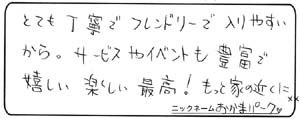 とても丁寧でフレンドリーで入りやすい
から。サービスやイベントも豊富で
嬉しい楽しい最高!もっと家の近くに××
ニックネームおかまパーク